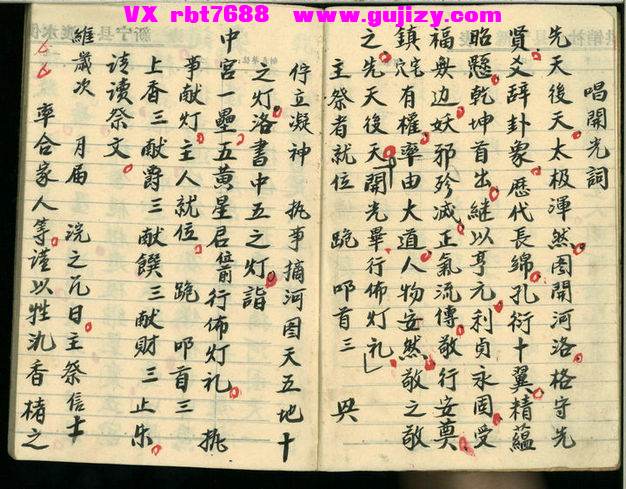 VX rbt7688 www.gujizy.com
唱開光詞
先天後天太極渾然图開河洛格守先
賢爻辞卦象歷代長綿孔衍十翼精蘊
昭懸乾坤首出継以亨元利貞永固受
福無边妖邪殄滅正氣流傳敬行安奠
鎮宅穴有權率由大道人物安然敬之敬
之先天後天開光畢行佈灯礼
主祭者就位 跪 叩首三 興
佇立凝神 执事摘河图天五地十
之灯洛書中五之灯詣
中宮一壘五黄星君位前行佈灯礼 执
事献灯主人就位 跪 叩首三
上香三献爵三献饌三献財三止乐
请读祭文
維歲次 月届 浣之几日主祭信士
率合家人等謹以牲氿香楮之